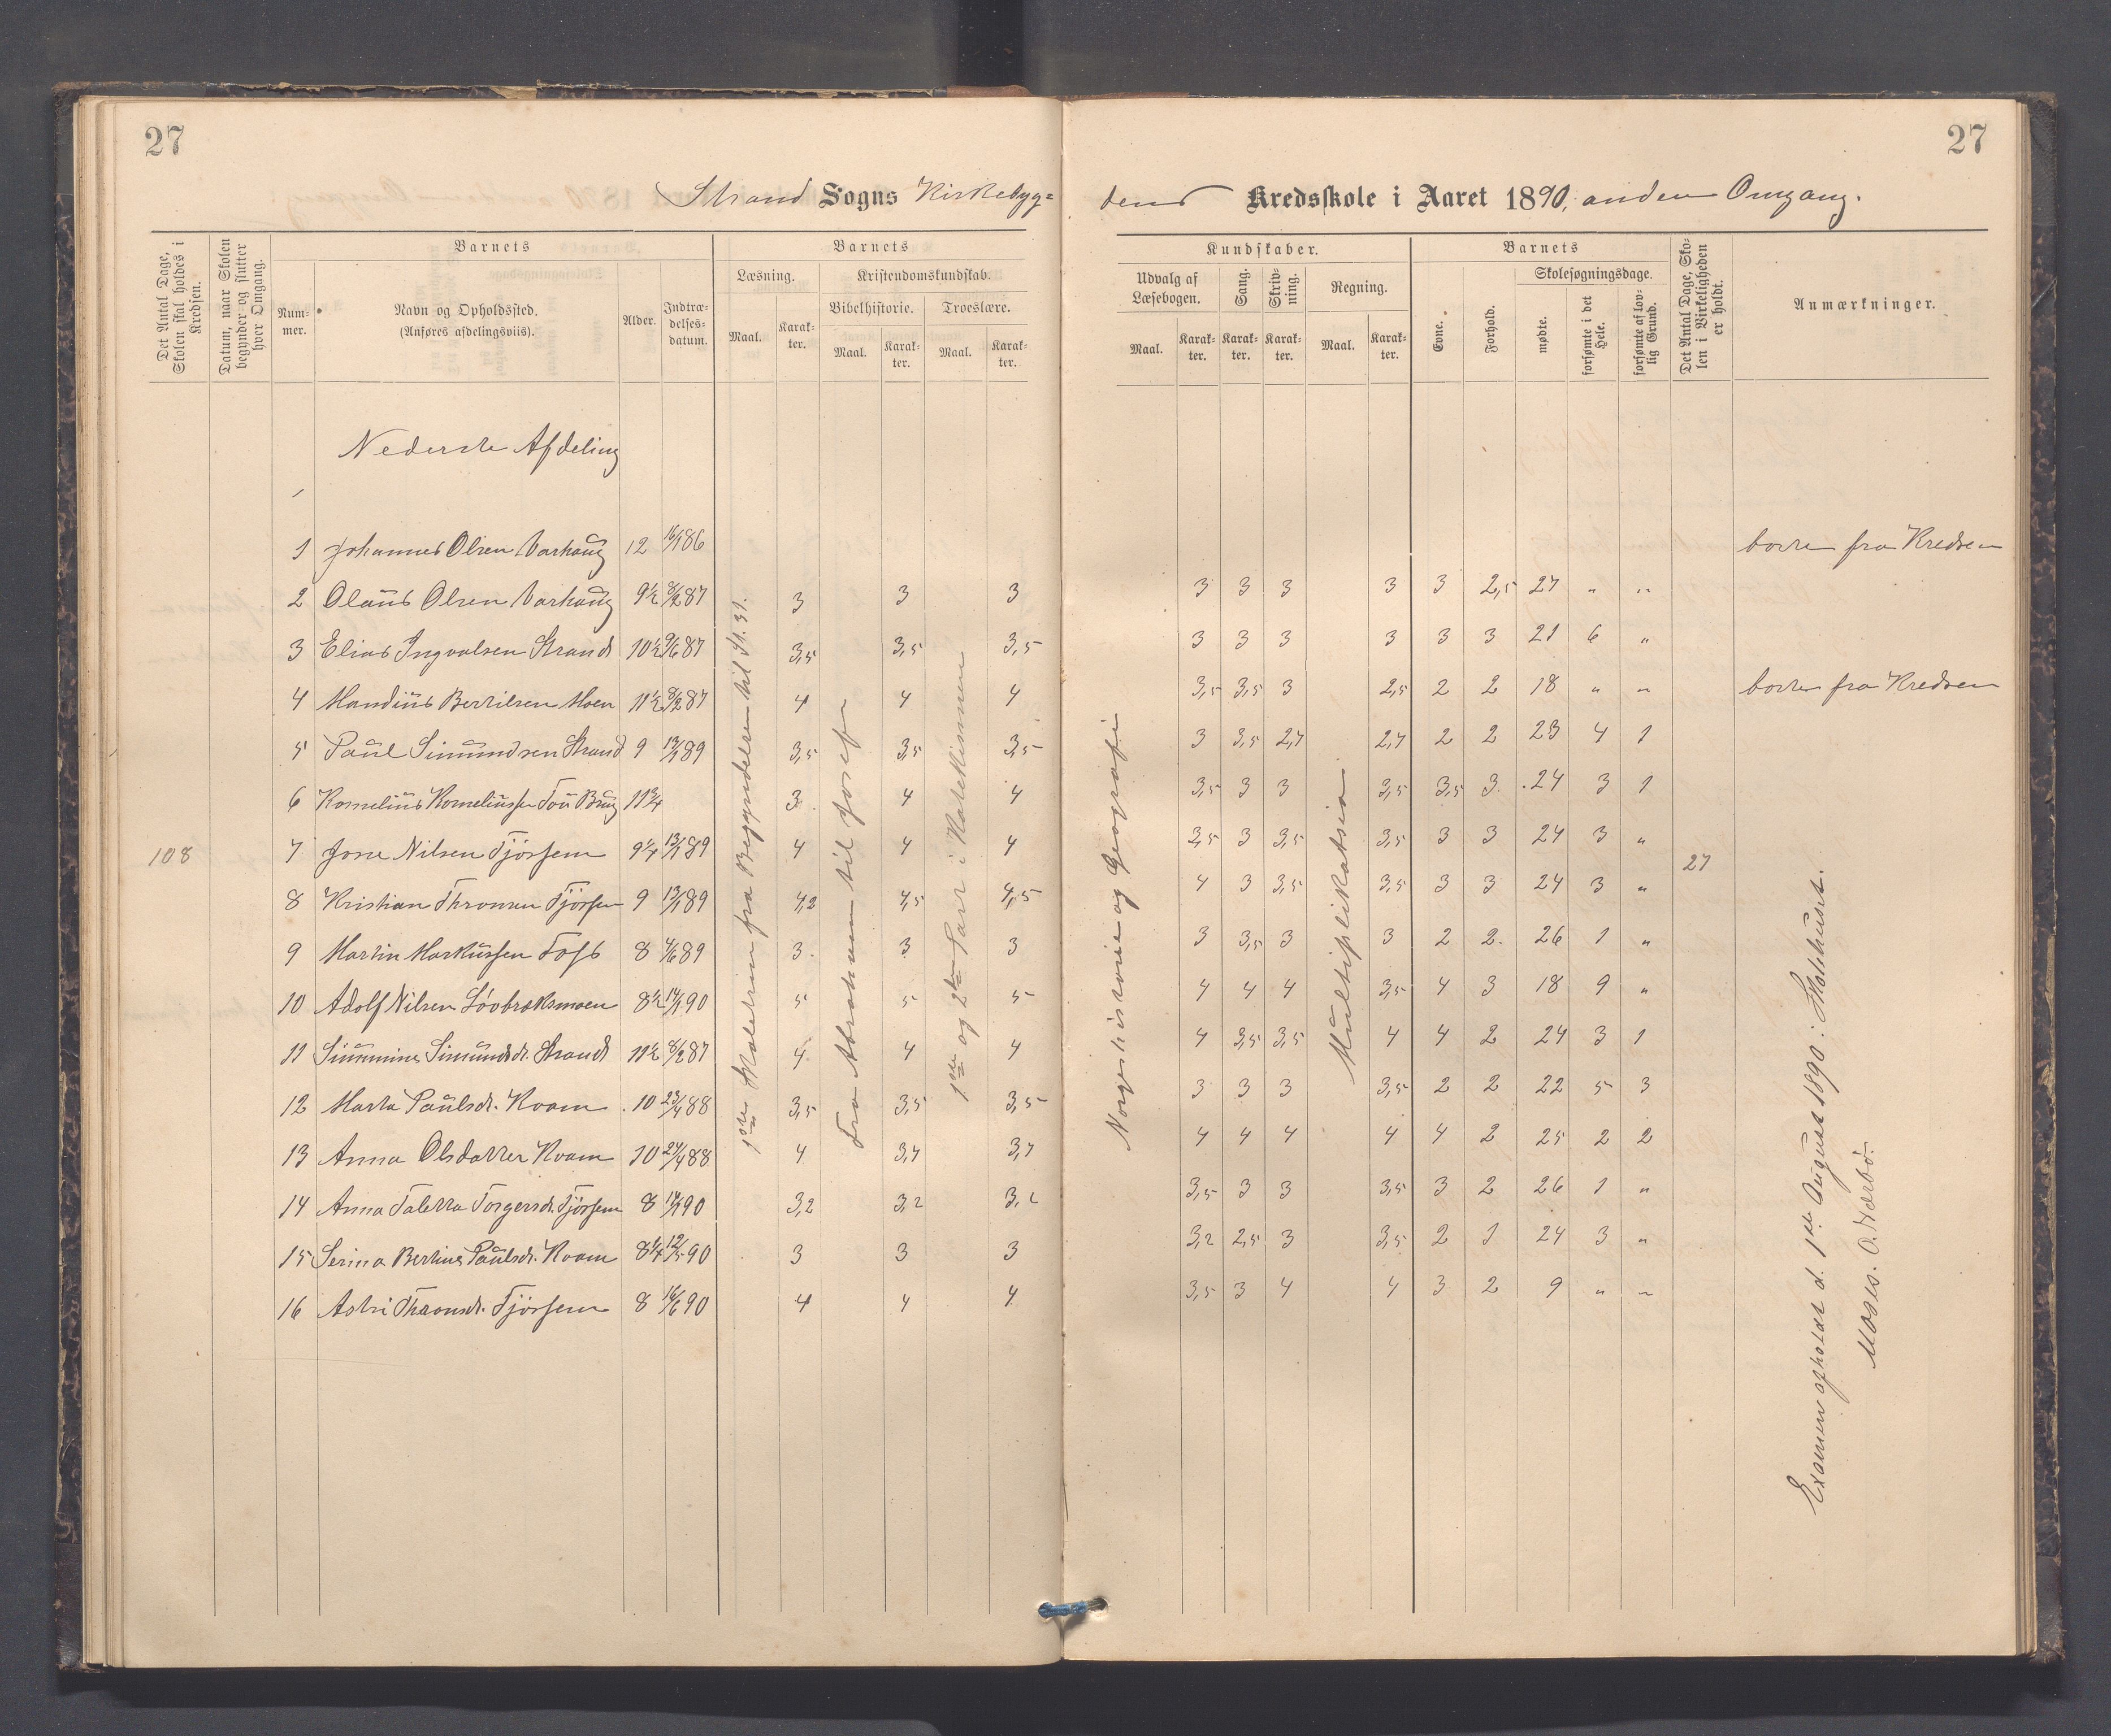 27
27
Strand Sogns Kirkebyg=
dens Kredsskole i Aaret 1890, anden Omgang.
Det Antal Dage, Skolen skal holdes i Kredsen.
Datum, naar Skolen begynder og slutter hver Omgang.
Barnets
Num-mer.
Navn og Opholdssted.
(Anføres afdelingsviis).
Alder.
Indtræ-delses-datum.
Barnets
Læsning.
Maal.
Karak-ter.
Kristendomskundskab.
Bibelhistorie.
Maal.
Karak-ter.
Troeslære.
Maal.
Karak-ter.
Kundskaber.
Udvalg af Læsebogen.
Maal.
Karak-ter.
Sang.
Karak-ter.
Skriv-ning.
Karak-ter.
Regning.
Maal.
Karak-ter.
Barnets
Evne.
Forhold.
Skolesøgningsdage.
mødte.
forsømte i det Hele.
forsømte af lov-lig Grund.
Det Antal Dage, Sko-len i Virkeligheden er holdt.
Anmærkninger.
Nederste Afdeling
1 Johannes Olsen Varhaug 12 16/1 86 borte fra Kredsen
2 Olaus Olsen Varhaug 9½ 8/2 87 3 3 3 3 3 3 3 3 2,5 27 " "
3 Elias Ingvalsen Strand 10½ 9/6 87 3,5 3,5 3,5 3 3 3 3 3 3 21 6 "
4 Mandius Bertilsen Moen 11½ 8/2 87 4 4 4 3,5 3,5 3 2,5 2 2 18 " " borte fra Kredsen
5 Paul Simundsen Strand 9 13/1 89 3,5 3,5 3,5 3 3,5 2,7 2,7 2 2 23 4 1
6 Kornelius Korneliussen Tou Brug 11¾ 3 4 4 3,5 3 3 3,5 3,5 3 24 3 1
108 7 Jone Nilsen Fjörsem 9¼ 13/1 89 4 4 4 3,5 3 3,5 3,5 3 3 24 3 " 27
8 Kristian Thronsen Tjörsem 9 13/1 89 4,2 4,5 4,5 4 3 3,5 3,5 3 3 24 3 "
9 Martin Markussen Fos 8 4/6 89 3 3 3 3 3,5 3 3 2 2 26 1 "
10 Adolf Nilsen Lövbræksmoen 8½ 14/1 90 5 5 5 4 4 4 3,5 4 3 18 9 "
11 Simmine Simundsdt. Strand 11½ 8/2 87 4 4 4 4 3,5 3,5 4 4 2 24 3 1
12 Marta Paulsdt. Kvam 10 23/4 88 3,5 3,5 3,5 3 3 3 3,5 2 2 22 5 3
13 Anna Olsdatter Kvam 10 24/4 88 4 3,7 3,7 4 4 4 4 4 2 25 2 2
14 Anna Taletta Torgersdt. Tjörsem 8 14/1 90 3,2 3,2 3,2 3,5 3 3 3,5 3 2 26 1 "
15 Serina Bertine Paulsdt. Kvam 8¼ 12/5 90 3 3 3 3,2 2,5 3 3,5 2 1 24 3 "
16 Astri Thronsdt. Tjörsem 8 16/6 90 4 4 4 3,5 3 4 4 3 2 9 " "
1ste Skoletrin fra Begyndelsen til St. 31.
Fra Abraham til Josef
1ste og 2den Part i Katekismen
Norgeshistorie og Geografi
Multiplikation
Examen afholdt d. 1ste August 1890 i Skolehuset.
Moses. O. Nærbö.